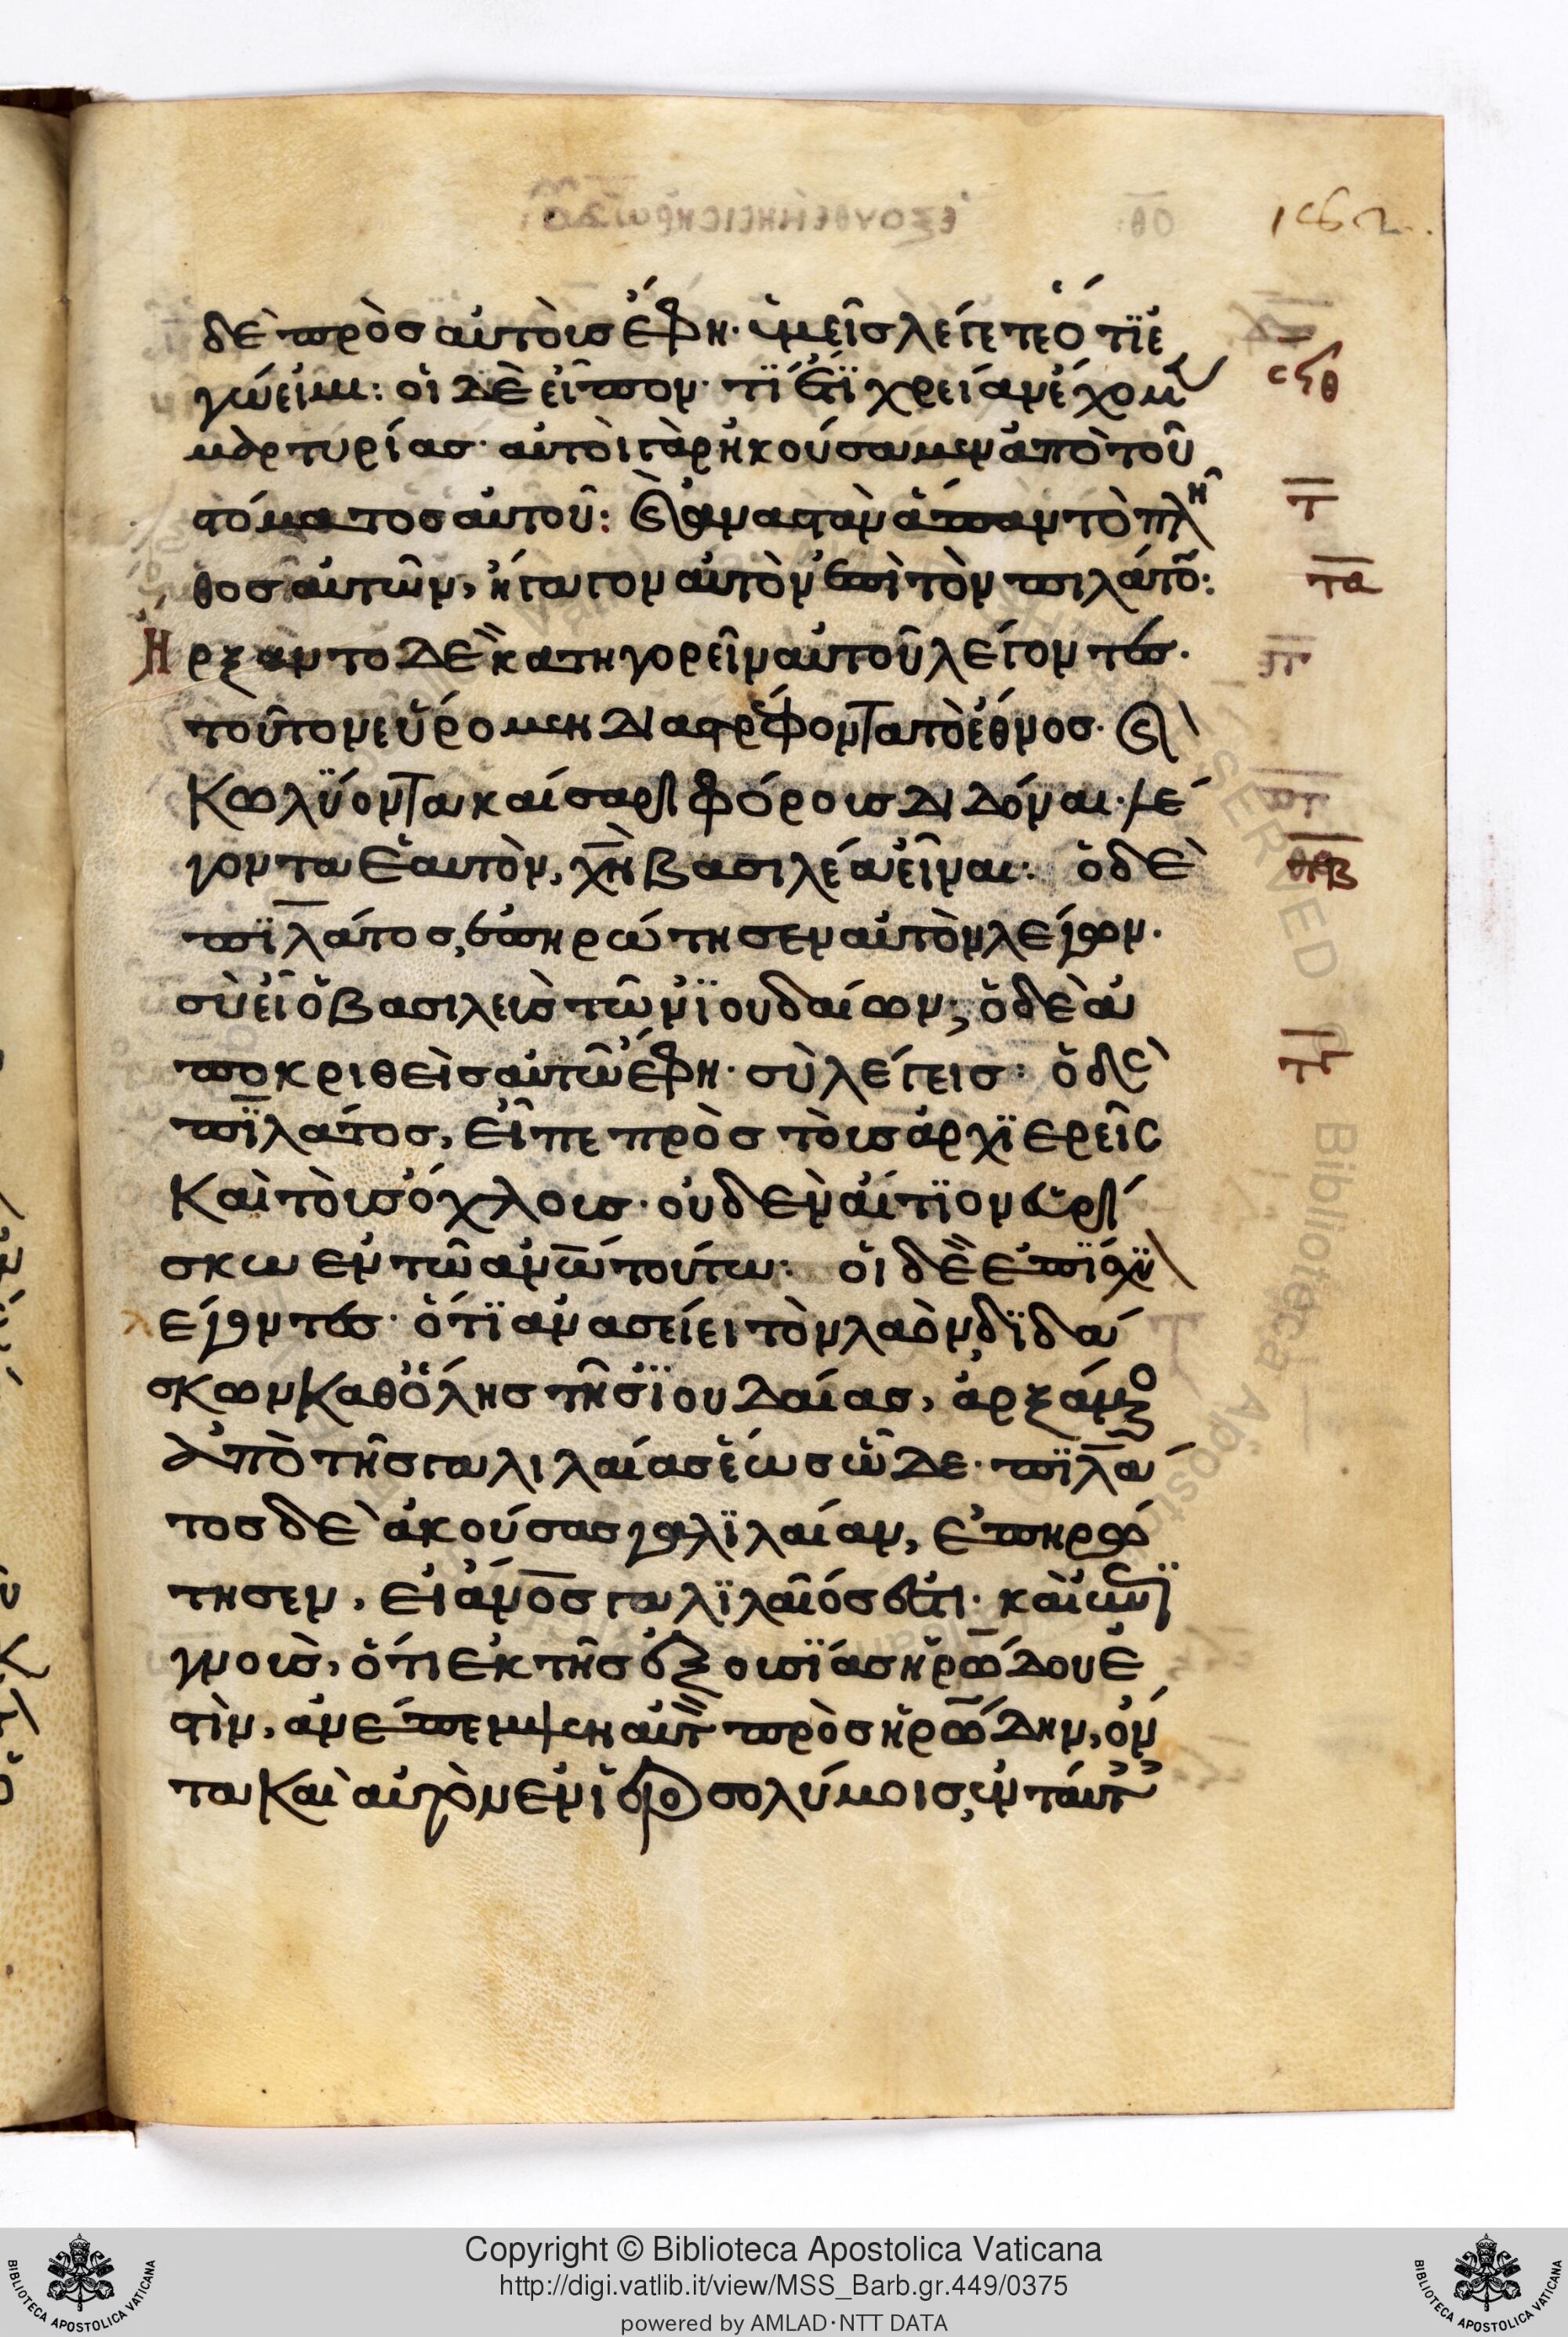 162
δὲ πρὸσ αὐτοὺσ ἔφη· ὑμεῖσ λέγετε ὅτϊ ἐ
σϟθ
γώ εἰμι: οἱ δὲ εἶπον· τί ἔτϊ χρείαν ἔχομεν
μαρτυρίασ· αὐτοὶ γὰρ ἠκούσαμεν ἀπὸ τοῦ
στόματοσ αὐτοῦ: καὶ ἀναστὰν ἅπαν τὸ πλῆ
τ
θοσ αὐτῶν, ἤγαγον αὐτὸν ἐπὶ τὸν πιλάτον:
τα
Ἤρξαντο δὲ κατηγορεῖν αὐτοῦ λέγοντεσ·
τοῦτον εὕρομεν διαστρέφοντα τὸ ἔθνοσ· καὶ
κωλϋόντα καίσαρι φόρουσ διδόναι· λέ
γοντα ἑαυτὸν, χ̅ν̅ βασιλέα εἶναι: ὁ δὲ
τβ
πϊλάτοσ, ἐπηρώτησεν αὐτὸν λέγων·
σὺ εἶ ὁ βασιλεὺσ τῶν ϊουδαίων; ὁ δὲ ἀ
ποκριθεὶσ αὐτῶ ἔφη· σὺ λέγεισ: ὁ δὲ
τγ
πϊλάτοσ, εἶπε πρὸσ τοὺσ ἀρχϊερεῖσ
καὶ τοὺσ ὄχλουσ· οὐδὲν αἴτϊον εὑρί
σκω ἐν τῶ ἀ̅ν̅ω̅ τούτω: οἱ δὲ ἐπϊσχϋ
λέγοντεσ· ὅτϊ ἀνασείει τὸν λαὸν, δϊδά
σκων καθ' ὅλησ τῆσ ϊουδαίασ, ἀρξάμενοσ
ἀπὸ τῆσ γαλιλαίασ ἕωσ ὧδε· πϊλά
τοσ δὲ ἀκούσασ γαλϊλαίαν, ἐπηρώ
τησεν, εἰ ὁ ἀ̅ν̅ο̅σ̅ γαλϊλαῖόσ ἐστι· καὶ ἐπϊ
γνοὺσ, ὅτι ἐκ τῆσ ἐξουσϊάσ ἡρώδου ἐ
στὶν, ἀνέπεμψεν αὐτὸν πρὸσ ἡρώδην, ὄν
τα καὶ αὐτὸν ἐν ἱεροσολύμοισ, ἐν ταύταισ
Copyright © Biblioteca Apostolica Vaticana
http://digi.vatlib.it/view/MSS_Barb.gr.449/0375
powered by AMLAD·NTT DATA